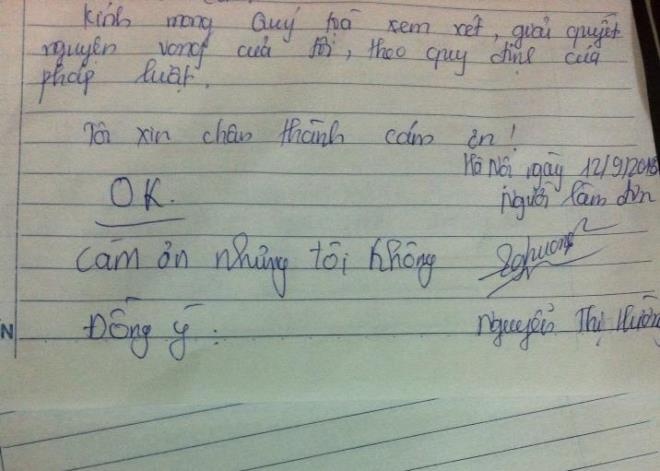 kính mong Quý toà xem xét, giải quyết
nguyện vọng của tôi, theo quy định của
pháp luật.
Tôi xin chân thành cám ơn!
Hà Nội ngày 12/9/2018
Người làm đơn
OK.
Cám ơn nhưng tôi không
Đồng ý.
Nguyễn Thị Hường
N